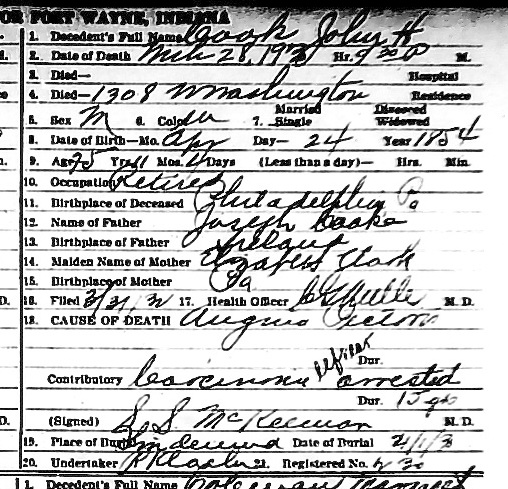 FOR FORT WAYNE, INDIANA
1. Decedent's Full Name Cook John H
2. Date of Death Mch 28, 1930 Hr. 9 30 P M.
3. Died— Hospital
4. Died—1308 W Washington Residence
5. Sex M 6. Color W 7. Married Single Divorced Widowed
8. Date of Birth—Mo. Apr Day— 24 Year 1854
9. Age 75 Yrs. 11 Mos. 4 Days (Less than a day)— Hrs. Min.
10. Occupation Retired
11. Birthplace of Deceased Philadelphia Pa
12. Name of Father Joseph Cooke
13. Birthplace of Father Ireland
14. Maiden Name of Mother Elizabeth Clark
15. Birthplace of Mother Pa
16. Filed 3/31/30 17. Health Officer M. D.
18. CAUSE OF DEATH Angina Pectoris
Dur.
Contributory Carcinoma arrested
Dur. 15
(Signed) S. S. McKeeman M. D.
19. Place of Burial Lindenwood Date of Burial 4/1/30
20. Undertaker 21. Registered No.
1. Decedent's Full Name